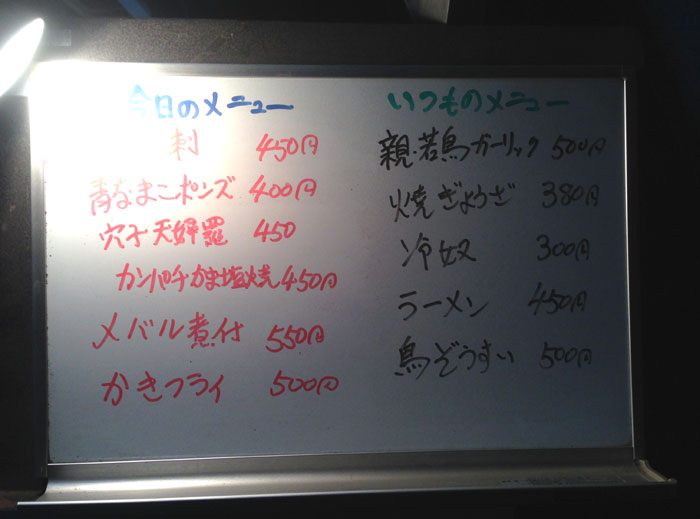 今日のメニュー
刺 450円
青なまこポンズ 400円
穴子天婦羅 450
カンパチかま塩焼 450円
メバル煮付 550円
かきフライ 500円
いつものメニュー
親・若鳥ガーリック 500円
焼ぎょうざ 380円
冷奴 300円
ラーメン 450円
鳥ぞうすい 500円